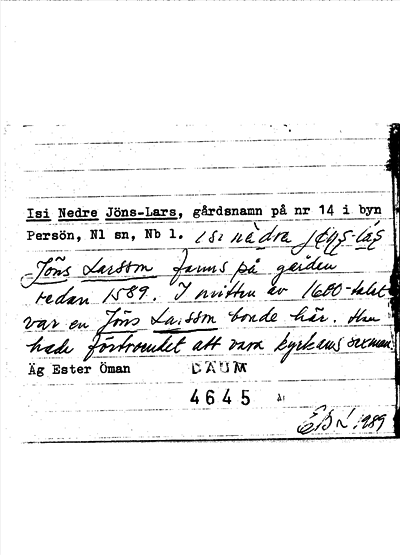 Isi Nedre Jöns-Lars, gårdsnamn på nr 14 i byn
Persön, Nl sn, Nb l. isi nädra jöns-las
Jöns Larsson fanns på gården
redan 1589. I mitten av 1600-talet
var en Jöns Larsson bonde här. Han
hade förtroendet att vara kyrkans sexman
Äg Ester Öman DAUM
4645
EBL 1989